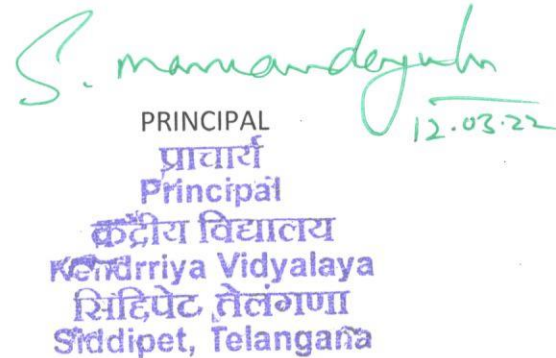 S.
12.03.22
PRINCIPAL
प्राचार्य
Principal
केंद्रीय विद्यालय
Kendrriya Vidyalaya
सिद्दिपेट तेलंगाणा
Siddipet, Telangana